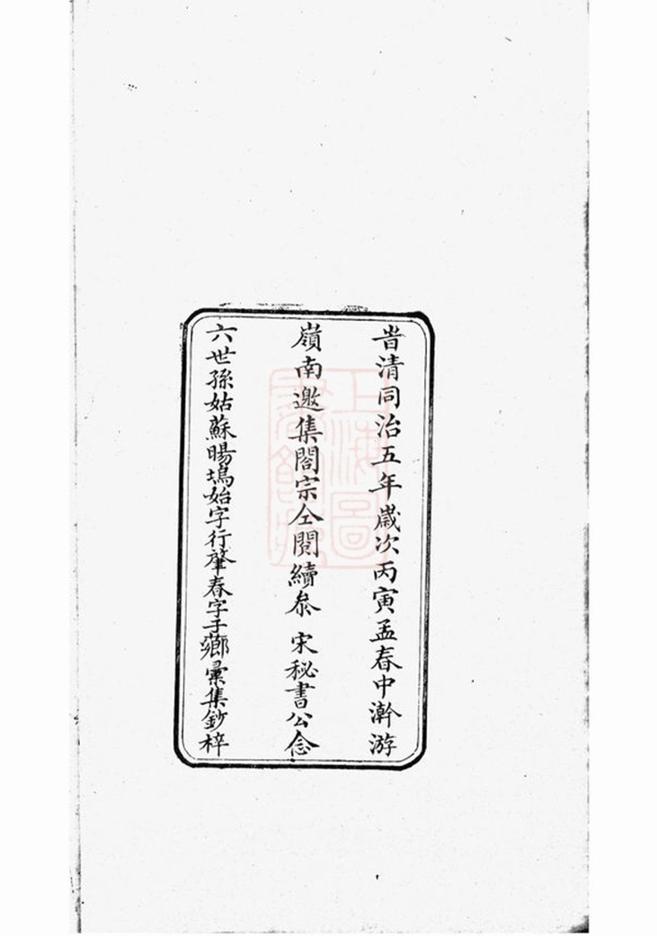 旹清同治五年歲次丙寅孟春中澣游
嶺南邀集閤宗仝閱續叅 宋秘書公念
六世孫姑蘇暘塢始字行肇春字子薌彚集鈔梓
上海圖